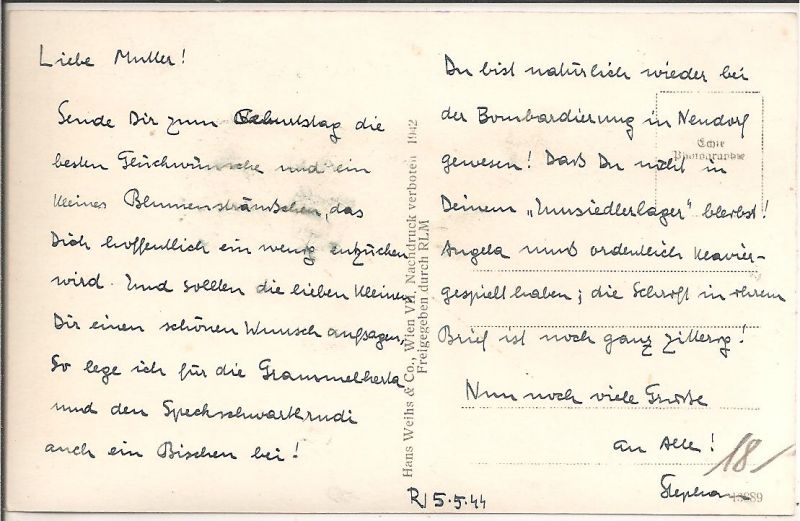 Liebe Mutter!
Sende Dir zum Geburtstag die
besten Glückwünsche und ein
kleines Blumensträuschen, das
Dich hoffentlich ein wenig entzücken
wird. Und sollten die lieben Kleinen
Dir einen schönen Wunsch aufsagen,
So lege ich für die Grammelherta
und den Speckschwartlrudi
auch ein Bischen bei!
Hans Weihs & Co., Wien VII. Nachdruck verboten 1942
Freigegeben durch RLM
Du bist natürlich wieder bei
der Bombardierung in Neudorf
gewesen! Daß Du nicht in
Deinem „Umsiedlerlager" bleibst!
Angela muß ordentlich Klavier-
gespielt haben; die Schrift in ihrem
Brief ist noch ganz zittrig!
Nun noch viele Grüße
an Alle!
Stephan
Echte
Photographie
18
5.5.44